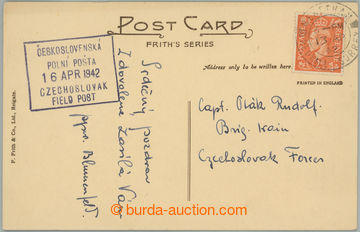 POST CARD
FRITH'S SERIES
Address only to be written here.
PRINTED IN ENGLAND
ČESKOSLOVENSKÁ
POLNÍ POŠTA
16 APR 1942
CZECHOSLOVAK
FIELD POST
POSTAGE
F. Frith & Co., Ltd., Reigate.
Srdečný pozdrav
z dovolené zasílá Vám
Blumenfeld.
Capt. Pták Rudolf.
Brig. train
Czechoslovak Forces
© burda-auction.com